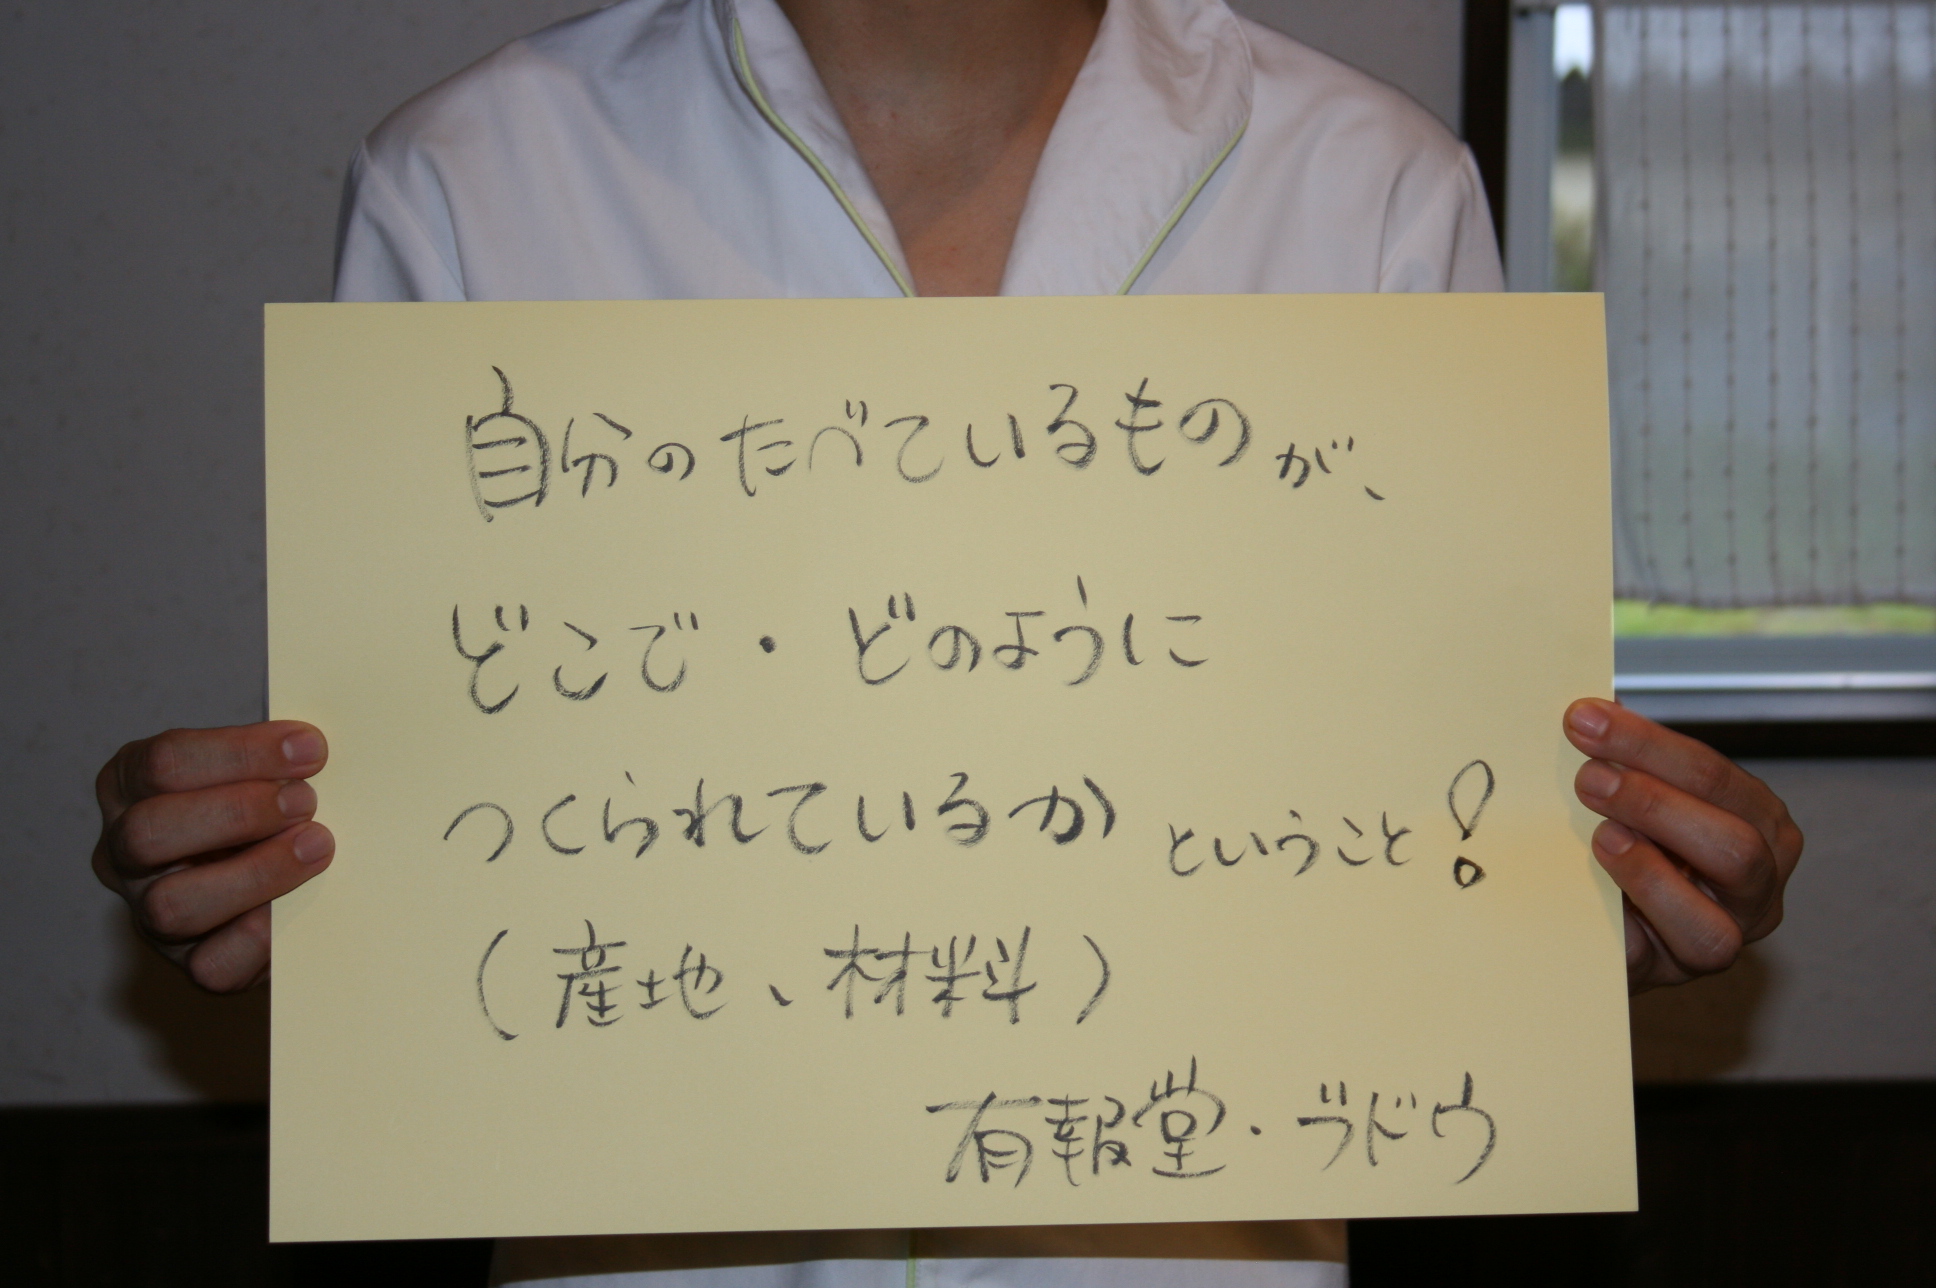 自分のたべているものが、
どこで・どのように
つくられているかということ!
(産地、材料)
有報堂・ラドウ